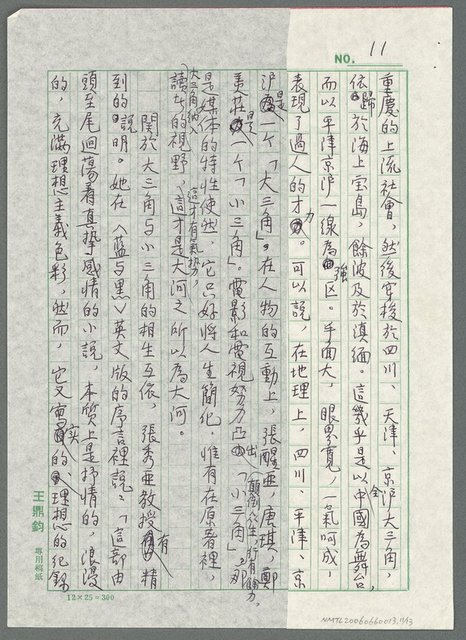 NO. 11
重慶的上流社會，然後穿梭於四川、天津、京沪大三角，
依歸於海上宝島，餘波及於滇緬。這幾乎是以全中國為舞台，
而以平津京沪一線為強区。手面大，眼界寬，一氣呵成，
表現了過人的才力。可以說，在地理上，四川、平津、京
沪是一个「大三角」。在人物的互動上，張醒亜，唐琪，鄭
美莊是一个「小三角」。電影和電視努力凸出「小三角」，那
是媒体的特性使然，它只好將人生簡化，惟有在原著裡，
顛倒众生，行有餘力，
大三角納入
讀者的視野，這才有氣勢，這才是大河之所以為大河。
關於大三角与小三角的相生互依，張秀亜教授有精
到的說明。她在〈藍与黑〉英文版的序言裡說：「這部由
頭至尾迴蕩着真摯感情的小說，本質上是抒情的，浪漫
的，充滿理想主義色彩，然而，它又是寫實的、理想的紀錄
王鼎鈞 專用稿紙
12×25=300
NMTL20060660013.11/13